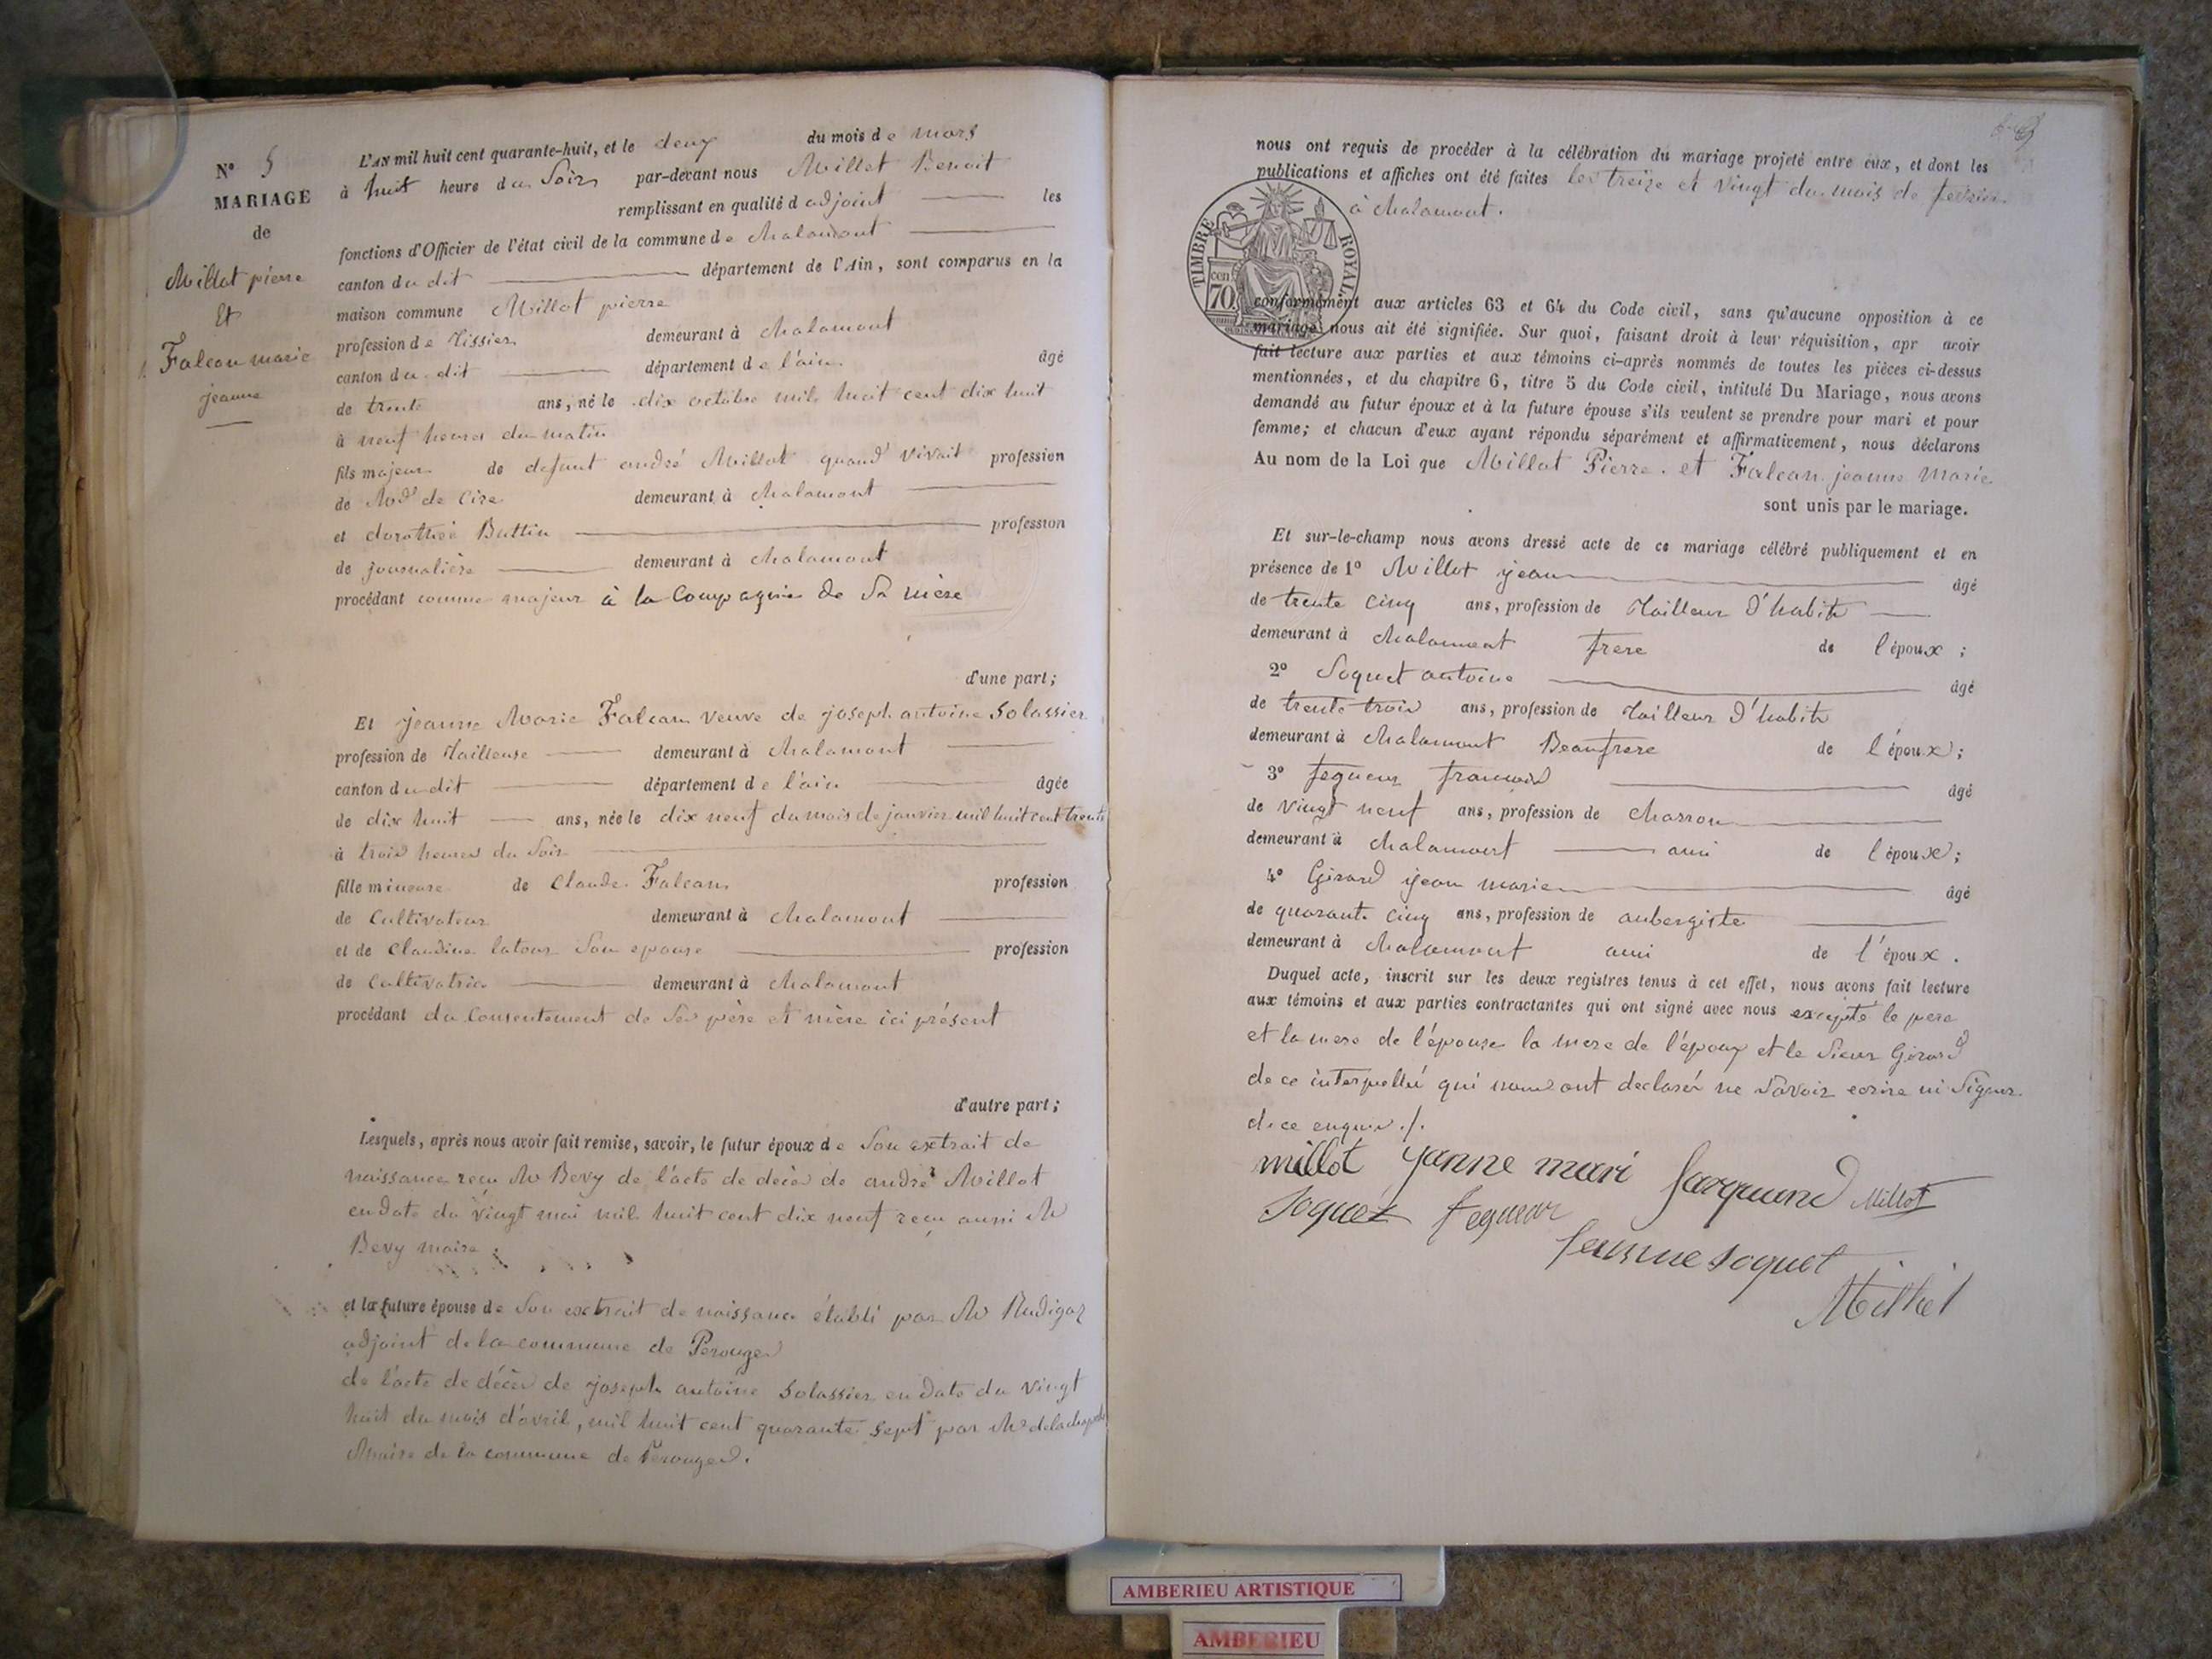 N° 5
MARIAGE
de
Millot pierre
Et
Falcan marie
jeanne
L'AN mil huit cent quarante-huit, et le deux du mois de mars
à huit heure du Soir par-devant nous Millet Benoit
remplissant en qualité d adjoint les
fonctions d'Officier de l'état civil de la commune de chalamont
canton du dit département de l'Ain, sont comparus en la
maison commune Millot pierre
profession de Tissier demeurant à chalamont
canton du dit département de l'ain âgé
de trente ans, né le dix octobre mil huit cent dix huit
à neuf heures du matin
fils majeur de defunt andré Millot quand vivait profession
de Md de Cire demeurant à chalamont
et dorothée Buttin profession
de journalière demeurant à chalamont
procédant comme majeur à la Compagnie de Sa mère
d'une part;
Et jeanne Marie Falcan veuve de joseph antoine Solassier
profession de Tailleuse demeurant à chalamont
canton du dit département de l'ain âgée
de dix huit ans, née le dix neuf du mois de janvier mil huit cent trente
à trois heures du Soir
fille mineure de Claude Falcan profession
de Cultivateur demeurant à chalamont
et de Claudine latour Son epouse profession
de Cultivatrice demeurant à chalamont
procédant du Consentement de Ses père et mère ici présent
d'autre part;
Lesquels, après nous avoir fait remise, savoir, le futur époux de Son extrait de
naissance reçu Mr Bevy de l'acte de décès de andré Millot
en date du vingt mai mil huit cent dix neuf reçu aussi Mr
Bevy maire
et la future épouse de Son extrait de naissance établi par Mr Rudigoz
adjoint de la commune de Perouges
de l'acte de décès de joseph antoine Solassier en date du vingt
huit du mois d'avril, mil huit cent quarante sept par Mr
Maire de la commune de Perouges.
nous ont requis de procéder à la célébration du mariage projeté entre eux, et dont les
publications et affiches ont été faites les treize et vingt du mois de fevrier
à chalamont.
TIMBRE ROYAL
70 cen
conformément aux articles 63 et 64 du Code civil, sans qu'aucune opposition à ce
mariage nous ait été signifiée. Sur quoi, faisant droit à leur réquisition, apr avoir
fait lecture aux parties et aux témoins ci-après nommés de toutes les pièces ci-dessus
mentionnées, et du chapitre 6, titre 5 du Code civil, intitulé Du Mariage, nous avons
demandé au futur époux et à la future épouse s'ils veulent se prendre pour mari et pour
femme; et chacun d'eux ayant répondu séparément et affirmativement, nous déclarons
Au nom de la Loi que Millot Pierre. et Falcan jeanne Marie
sont unis par le mariage.
Et sur-le-champ nous avons dressé acte de ce mariage célébré publiquement et en
présence de 1° Millot jean âgé
de trente cinq ans, profession de Tailleur d'habits
demeurant à chalamont frere de l'époux;
2° Soquet antoine âgé
de trente trois ans, profession de Tailleur d'habits
demeurant à chalamont Beaufrere de l'époux;
3° fegueur francois âgé
de vingt neuf ans, profession de charron
demeurant à chalamont ami de l'époux;
4° Girard jean marie âgé
de quarante cinq ans, profession de aubergiste
demeurant à chalamont ami de l'époux.
Duquel acte, inscrit sur les deux registres tenus à cet effet, nous avons fait lecture
aux témoins et aux parties contractantes qui ont signé avec nous excepté le pere
et la mere de l'épouse la mere de l'époux et le Sieur Girard
de ce interpellé qui nous ont declaré ne Savoir ecrire ni Signer
de ce enquis ./.
millot janne mari Millot
Soquet fegueur
femme soquet
Millet
AMBERIEU ARTISTIQUE
AMBERIEU